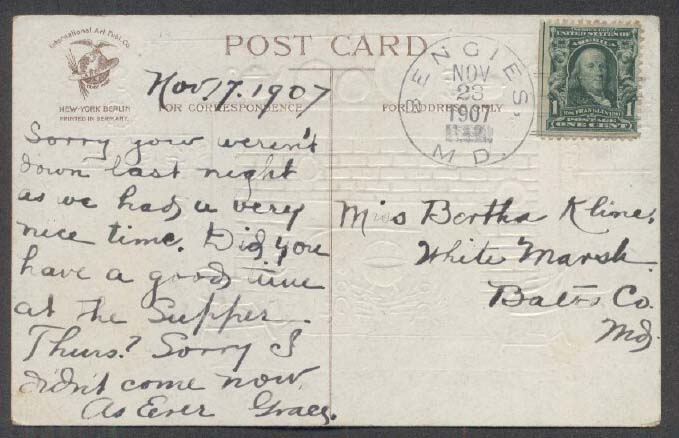 International Art Publ. Co.
NEW-YORK BERLIN
PRINTED IN GERMANY.
POST CARD
FOR CORRESPONDENCE
FOR ADDRESS ONLY
BENGIES,
NOV
23
1907
MD.
UNITED STATES OF
AMERICA
1
1
POSTAGE
ONE CENT
Nov, 17, 1907
Sorry you weren't
down last night
as we had a very
nice time. Did you
have a good time
at the Supper
Thurs? Sorry I
didn't come now.
As Ever Grace.
Miss Bertha Kline,
White Marsh
Balto Co.
Md.